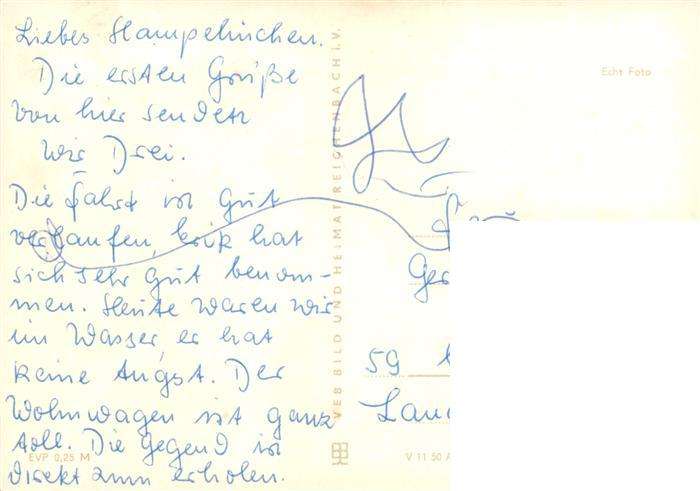 Liebes Hampelinchen.
Die ersten Grüße
von hier senden
wir Drei.
Die Fahrt ist Gut
verlaufen, Erik hat
sich sehr gut benom-
men. Heute waren wir
im Wasser, er hat
keine Angst. Der
Wohnwagen ist ganz
toll. Die Gegend ist
direkt zum erholen.
EVP 0,25 M
VEB BILD UND HEIMAT REICHENBACH I. V.
Echt Foto
59
V 11 50 A